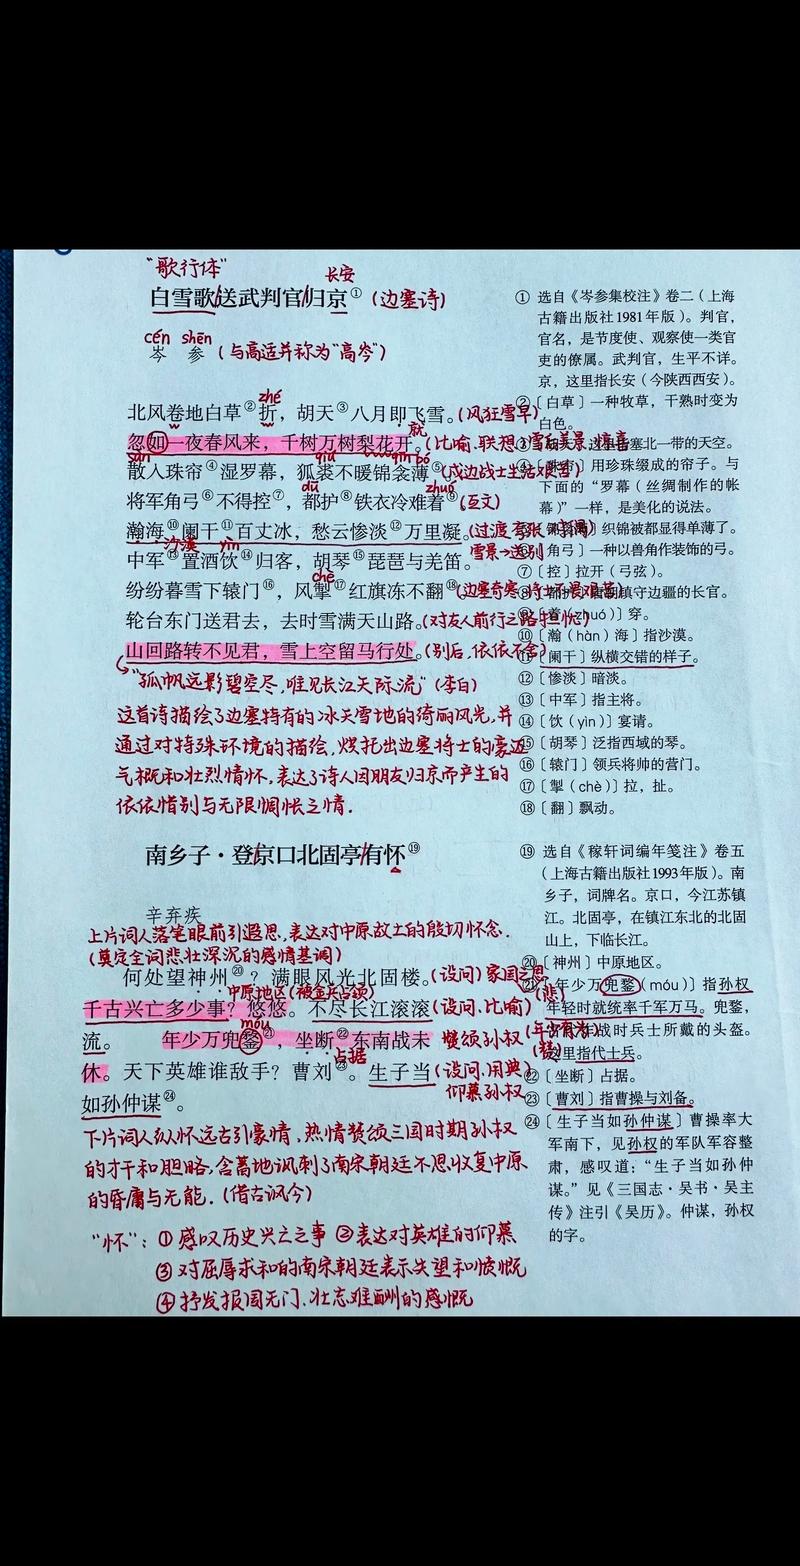 "歌行体"
长安
白雪歌/送武判官/归京①(边塞诗)
cén shēn
岑 参(与高适并称为"高岑")
zhé
北风卷地白草②折，胡天③八月即飞雪。(风狂雪早)
就
忽如一夜春风来，千树万树梨花开。(比喻、联想
sàn qiú qīn bó
散入珠帘④湿罗幕，狐裘不暖锦衾薄⑤(戍边战士生活艰苦)
dū zhuó
将军角弓⑥不得控⑦，都护⑧铁衣冷难着⑨。(互文)
瀚海⑩阑干⑪百丈冰，愁云惨淡⑫万里凝。(过渡
沙漠 yìn 雪景→送别
中军⑬置酒饮⑭归客，胡琴⑮琵琶与羌笛。
chè
纷纷暮雪下辕门⑯，风掣⑰红旗冻不翻⑱(边塞奇寒
轮台东门送君去，去时雪满天山路。(对友人前行之路担忧)
山回路转不见君，雪上空留马行处。(别后，依依不舍)
"孤帆远影碧空尽，唯见长江天际流"(李白)
这首诗描绘了边塞特有的冰天雪地的绮丽风光，并
通过对特殊环境的描绘，烘托出边塞将士的豪迈
气概和壮烈情怀，表达了诗人因朋友归京而产生的
依依惜别与无限惆怅之情.
南乡子·登/京口北固亭/有怀⑲
辛弃疾
上片词人落笔眼前引遐思，表达对中原故土的殷切怀念.
(奠定全词悲壮深沉的感情基调)
何处望神州⑳？满眼风光北固楼。(设问)家国之思
中原地区(被金兵占领) (悲)
千古兴亡多少事？悠悠。不尽长江滚滚(设问、比喻)
móu
流。 年少万兜鍪㉑，坐断㉒东南战未 赞颂孙权
占据
休。天下英雄谁敌手？曹刘㉓。生子当(设问、用典)
如孙仲谋㉔。 仰慕孙权
下片词人从怀远古引豪情，热情赞颂三国时期孙权
的才干和胆略，含蓄地讽刺了南宋朝廷不思收复中原
的昏庸与无能.(借古讽今)
"怀"：①感叹历史兴亡之事 ②表达对英雄的仰慕
③对屈辱求和的南宋朝廷表示失望和愤慨
④抒发报国无门、壮志难酬的感慨
① 选自《岑参集校注》卷二（上海
古籍出版社1981年版）。判官，
官名，是节度使、观察使一类官
吏的僚属。武判官，生平不详。
京，这里指长安（今陕西西安）。
②〔白草〕一种牧草，干熟时变为
白色。
塞北一带的天空。
用珍珠缀成的帘子。与
下面的"罗幕（丝绸制作的帐
幕）"一样，是美化的说法。
织锦被都显得单薄了。
角弓〕一种以兽角作装饰的弓。
⑦〔控〕拉开（弓弦）。
镇守边疆的长官。
（zhuó）穿。
⑩〔瀚（hàn）海〕指沙漠。
⑪〔阑干〕纵横交错的样子。
⑫〔惨淡〕暗淡。
⑬〔中军〕指主将。
⑭〔饮（yìn）〕宴请。
⑮〔胡琴〕泛指西域的琴。
⑯〔辕门〕领兵将帅的营门。
⑰〔掣（chè）〕拉，扯。
⑱〔翻〕飘动。
⑲ 选自《稼轩词编年笺注》卷五
（上海古籍出版社1993年版）。南
乡子，词牌名。京口，今江苏镇
江。北固亭，在镇江东北的北固
山上，下临长江。
⑳〔神州〕中原地区。
㉑〔年少万兜鍪（móu）〕指孙权
年轻时就统率千军万马。兜鍪，
作战时兵士所戴的头盔。
这里指代士兵。
㉒〔坐断〕占据。
㉓〔曹刘〕指曹操与刘备。
㉔〔生子当如孙仲谋〕曹操率大
军南下，见孙权的军队军容整
肃，感叹道："生子当如孙仲
谋。"见《三国志·吴书·吴主
传》注引《吴历》。仲谋，孙权
的字。